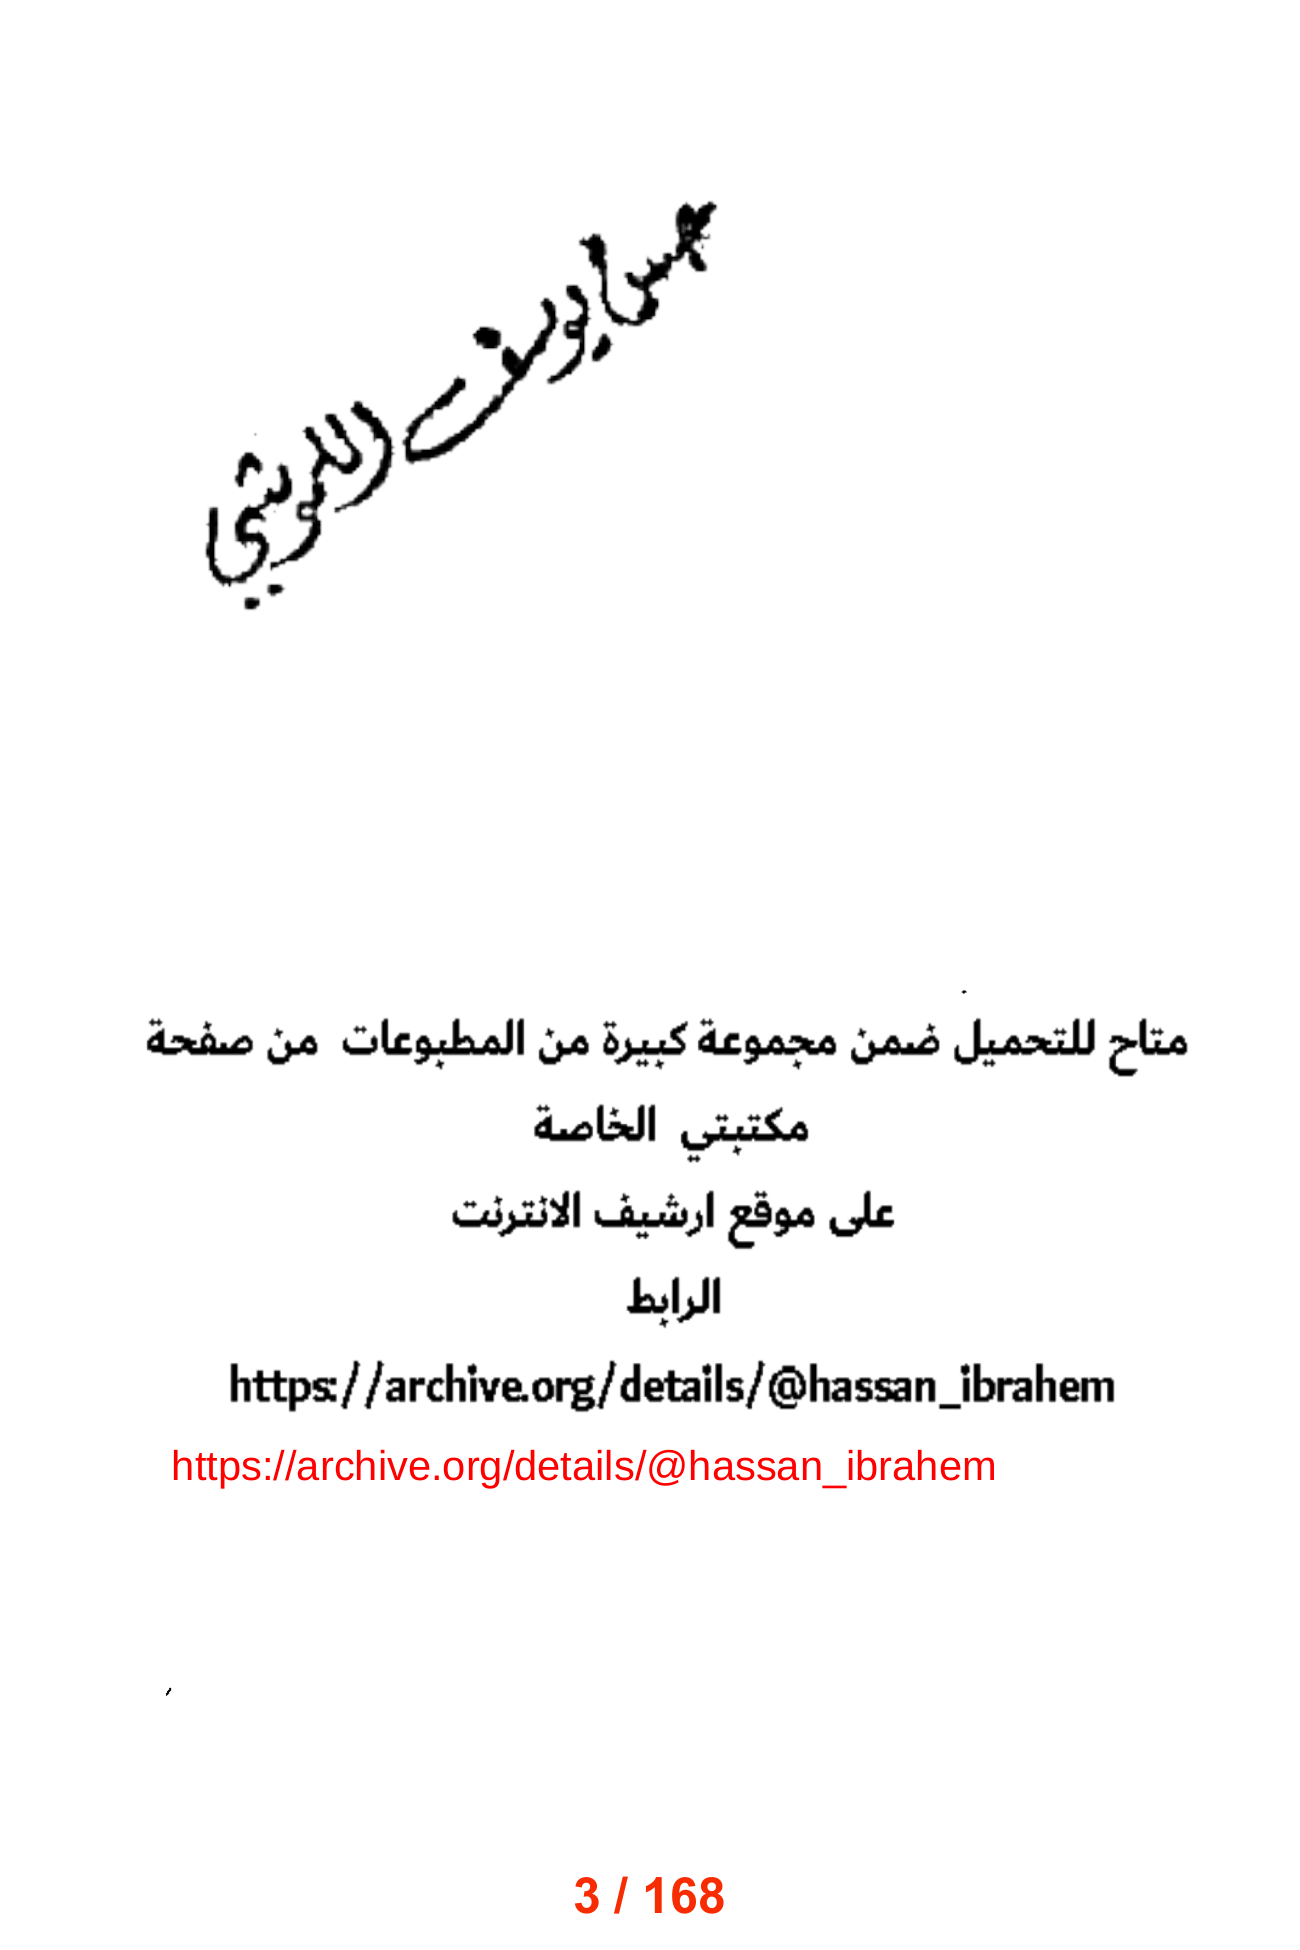 يوسف
متاح للتحميل ضمن مجموعة كبيرة من المطبوعات من صفحة
مكتبتي الخاصة
على موقع ارشيف الانترنت
الرابط
https://archive.org/details/@hassan_ibrahem
https://archive.org/details/@hassan_ibrahem
3 / 168